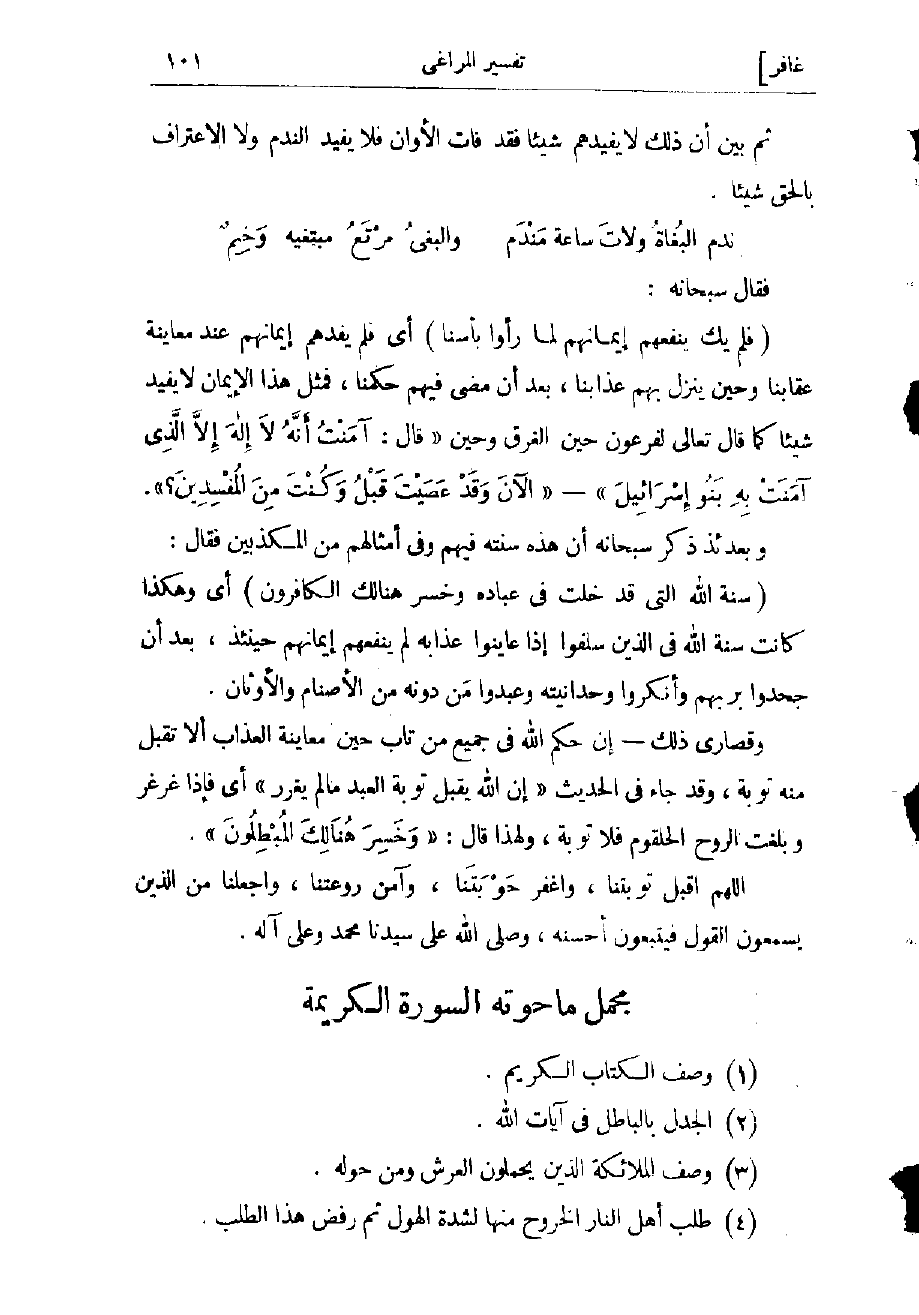 غافر] تفسير المراغى ١٠١
ثم بين أن ذلك لا يفيدهم شيئا فقد فات الأوان فلا يفيد الندم ولا الاعتراف
بالحق شيئا .
ندم البُغاةُ ولاتَ ساعة مَنْدَم والبغىُ مرْتَعُ مبتغيه وَخِيمُ
فقال سبحانه :
( فلم يك ينفعهم إيمانهم لما رأوا بأسنا ) أى فلم يفدهم إيمانهم عند معاينة
عقابنا وحين ينزل بهم عذابنا ، بعد أن مضى فيهم حكمنا ، فمثل هذا الإيمان لا يفيد
شيئا كما قال تعالى لفرعون حين الغرق وحين « قال : آمَنْتُ أَنَّهُ لاَ إِلٰهَ إِلاَّ الَّذِى
آمَنَتْ بِهِ بَنُو إِسْرَائِيلَ » — « الْآنَ وَقَدْ عَصَيْتَ قَبْلُ وَكُنْتَ مِنَ الْمُفْسِدِينَ؟».
وبعدئذ ذكر سبحانه أن هذه سنته فيهم وفى أمثالهم من المكذبين فقال :
( سنة الله التى قد خلت فى عباده وخسر هنالك الكافرون ) أى وهكذا
كانت سنة الله فى الذين سلفوا إذا عاينوا عذابه لم ينفعهم إيمانهم حينئذ ، بعد أن
جحدوا بربهم وأنكروا وحدانيته وعبدوا مَن دونه من الأصنام والأوثان .
وقصارى ذلك — إن حكم الله فى جميع من تاب حين معاينة العذاب ألا تقبل
منه توبة ، وقد جاء فى الحديث « إن الله يقبل توبة العبد مالم يغرر » أى فإذا غرغر
وبلغت الروح الحلقوم فلا توبة ، ولهذا قال : « وَخَسِرَ هُنَالِكَ الْمُبْطِلُونَ » .
اللهم اقبل توبتنا ، واغفر حَوْبَتَنا ، وآمن روعتنا ، واجعلنا من الذين
يسمعون القول فيتبعون أحسنه ، وصلى الله على سيدنا محمد وعلى آله .
مجمل ما حوته السورة الكريمة
(١) وصف الكتاب الكريم .
(٢) الجدل بالباطل فى آيات الله .
(٣) وصف الملائكة الذين يحملون العرش ومن حوله .
(٤) طلب أهل النار الخروج منها لشدة الهول ثم رفض هذا الطلب .